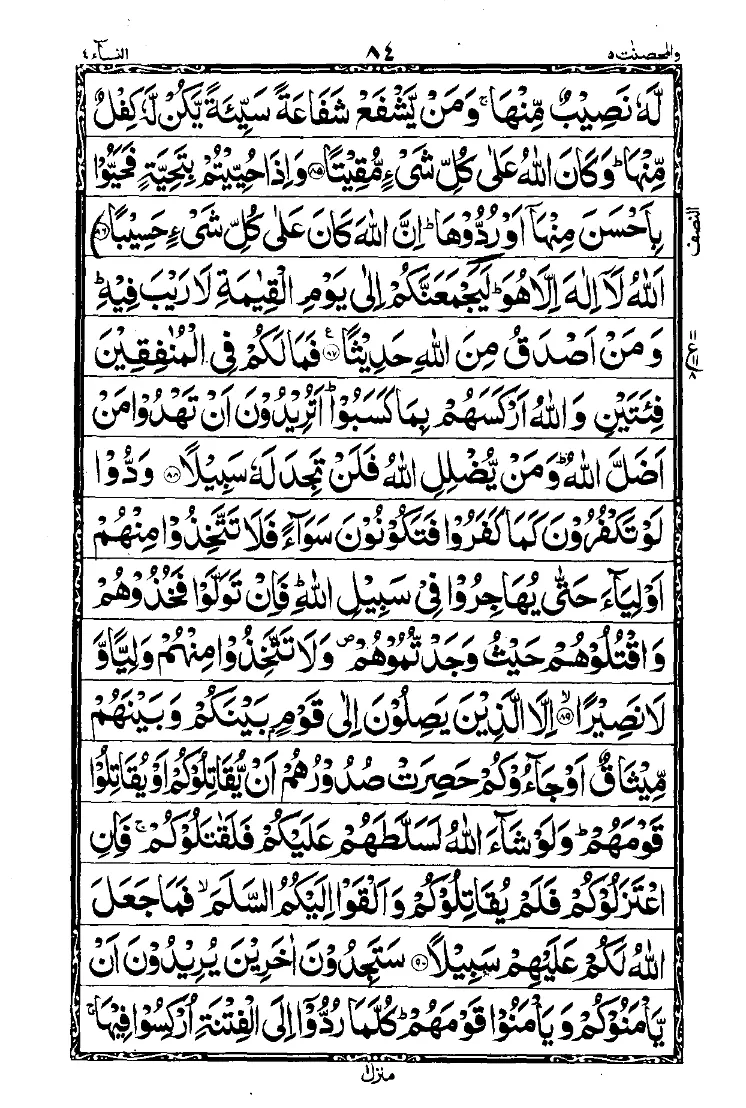 والمحصنٰت ٥ ٨٤ النساۤء ٤
لَّهٗ نَصِيْبٌ مِّنْهَا ۚ وَمَنْ يَّشْفَعْ شَفَاعَةً سَيِّئَةً يَّكُنْ لَّهٗ كِفْلٌ
مِّنْهَا ؕ وَكَانَ اللّٰهُ عَلٰى كُلِّ شَىْءٍ مُّقِيْتًا ﴿٨٥﴾ وَاِذَا حُيِّيْتُمْ بِتَحِيَّةٍ فَحَيُّوْا
بِاَحْسَنَ مِنْهَاۤ اَوْ رُدُّوْهَا ؕ اِنَّ اللّٰهَ كَانَ عَلٰى كُلِّ شَىْءٍ حَسِيْبًا ﴿٨٦﴾
النصف
اَللّٰهُ لَاۤ اِلٰهَ اِلَّا هُوَ ؕ لَيَجْمَعَنَّكُمْ اِلٰى يَوْمِ الْقِيٰمَةِ لَا رَيْبَ فِيْهِ ؕ
وَمَنْ اَصْدَقُ مِنَ اللّٰهِ حَدِيْثًا ﴿٨٧﴾ ع فَمَا لَكُمْ فِى الْمُنٰفِقِيْنَ
ع ١١ ٨
فِئَتَيْنِ وَاللّٰهُ اَرْكَسَهُمْ بِمَا كَسَبُوْا ؕ اَتُرِيْدُوْنَ اَنْ تَهْدُوْا مَنْ
اَضَلَّ اللّٰهُ ؕ وَمَنْ يُّضْلِلِ اللّٰهُ فَلَنْ تَجِدَ لَهٗ سَبِيْلًا ﴿٨٨﴾ وَدُّوْا
لَوْ تَكْفُرُوْنَ كَمَا كَفَرُوْا فَتَكُوْنُوْنَ سَوَاۤءً فَلَا تَتَّخِذُوْا مِنْهُمْ
اَوْلِيَاۤءَ حَتّٰى يُهَاجِرُوْا فِىْ سَبِيْلِ اللّٰهِ ؕ فَاِنْ تَوَلَّوْا فَخُذُوْهُمْ
وَاقْتُلُوْهُمْ حَيْثُ وَجَدْتُّمُوْهُمْ ۪ وَلَا تَتَّخِذُوْا مِنْهُمْ وَلِيًّا وَّ
لَا نَصِيْرًا ۙ﴿٨٩﴾ اِلَّا الَّذِيْنَ يَصِلُوْنَ اِلٰى قَوْمٍۭ بَيْنَكُمْ وَبَيْنَهُمْ
مِّيْثَاقٌ اَوْ جَاۤءُوْكُمْ حَصِرَتْ صُدُوْرُهُمْ اَنْ يُّقَاتِلُوْكُمْ اَوْ يُقَاتِلُوْا
قَوْمَهُمْ ؕ وَلَوْ شَاۤءَ اللّٰهُ لَسَلَّطَهُمْ عَلَيْكُمْ فَلَقٰتَلُوْكُمْ ۚ فَاِنِ
اعْتَزَلُوْكُمْ فَلَمْ يُقَاتِلُوْكُمْ وَاَلْقَوْا اِلَيْكُمُ السَّلَمَ ۙ فَمَا جَعَلَ
اللّٰهُ لَكُمْ عَلَيْهِمْ سَبِيْلًا ﴿٩٠﴾ سَتَجِدُوْنَ اٰخَرِيْنَ يُرِيْدُوْنَ اَنْ
يَّاْمَنُوْكُمْ وَيَاْمَنُوْا قَوْمَهُمْ ؕ كُلَّمَا رُدُّوْۤا اِلَى الْفِتْنَةِ اُرْكِسُوْا فِيْهَا ۚ
منزل ١